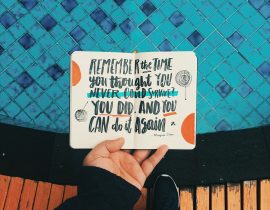 REMEMBER the TIME
you thought YOU
NEVER COULD SURVIVE?
YOU DID. AND YOU
CAN do it Again.